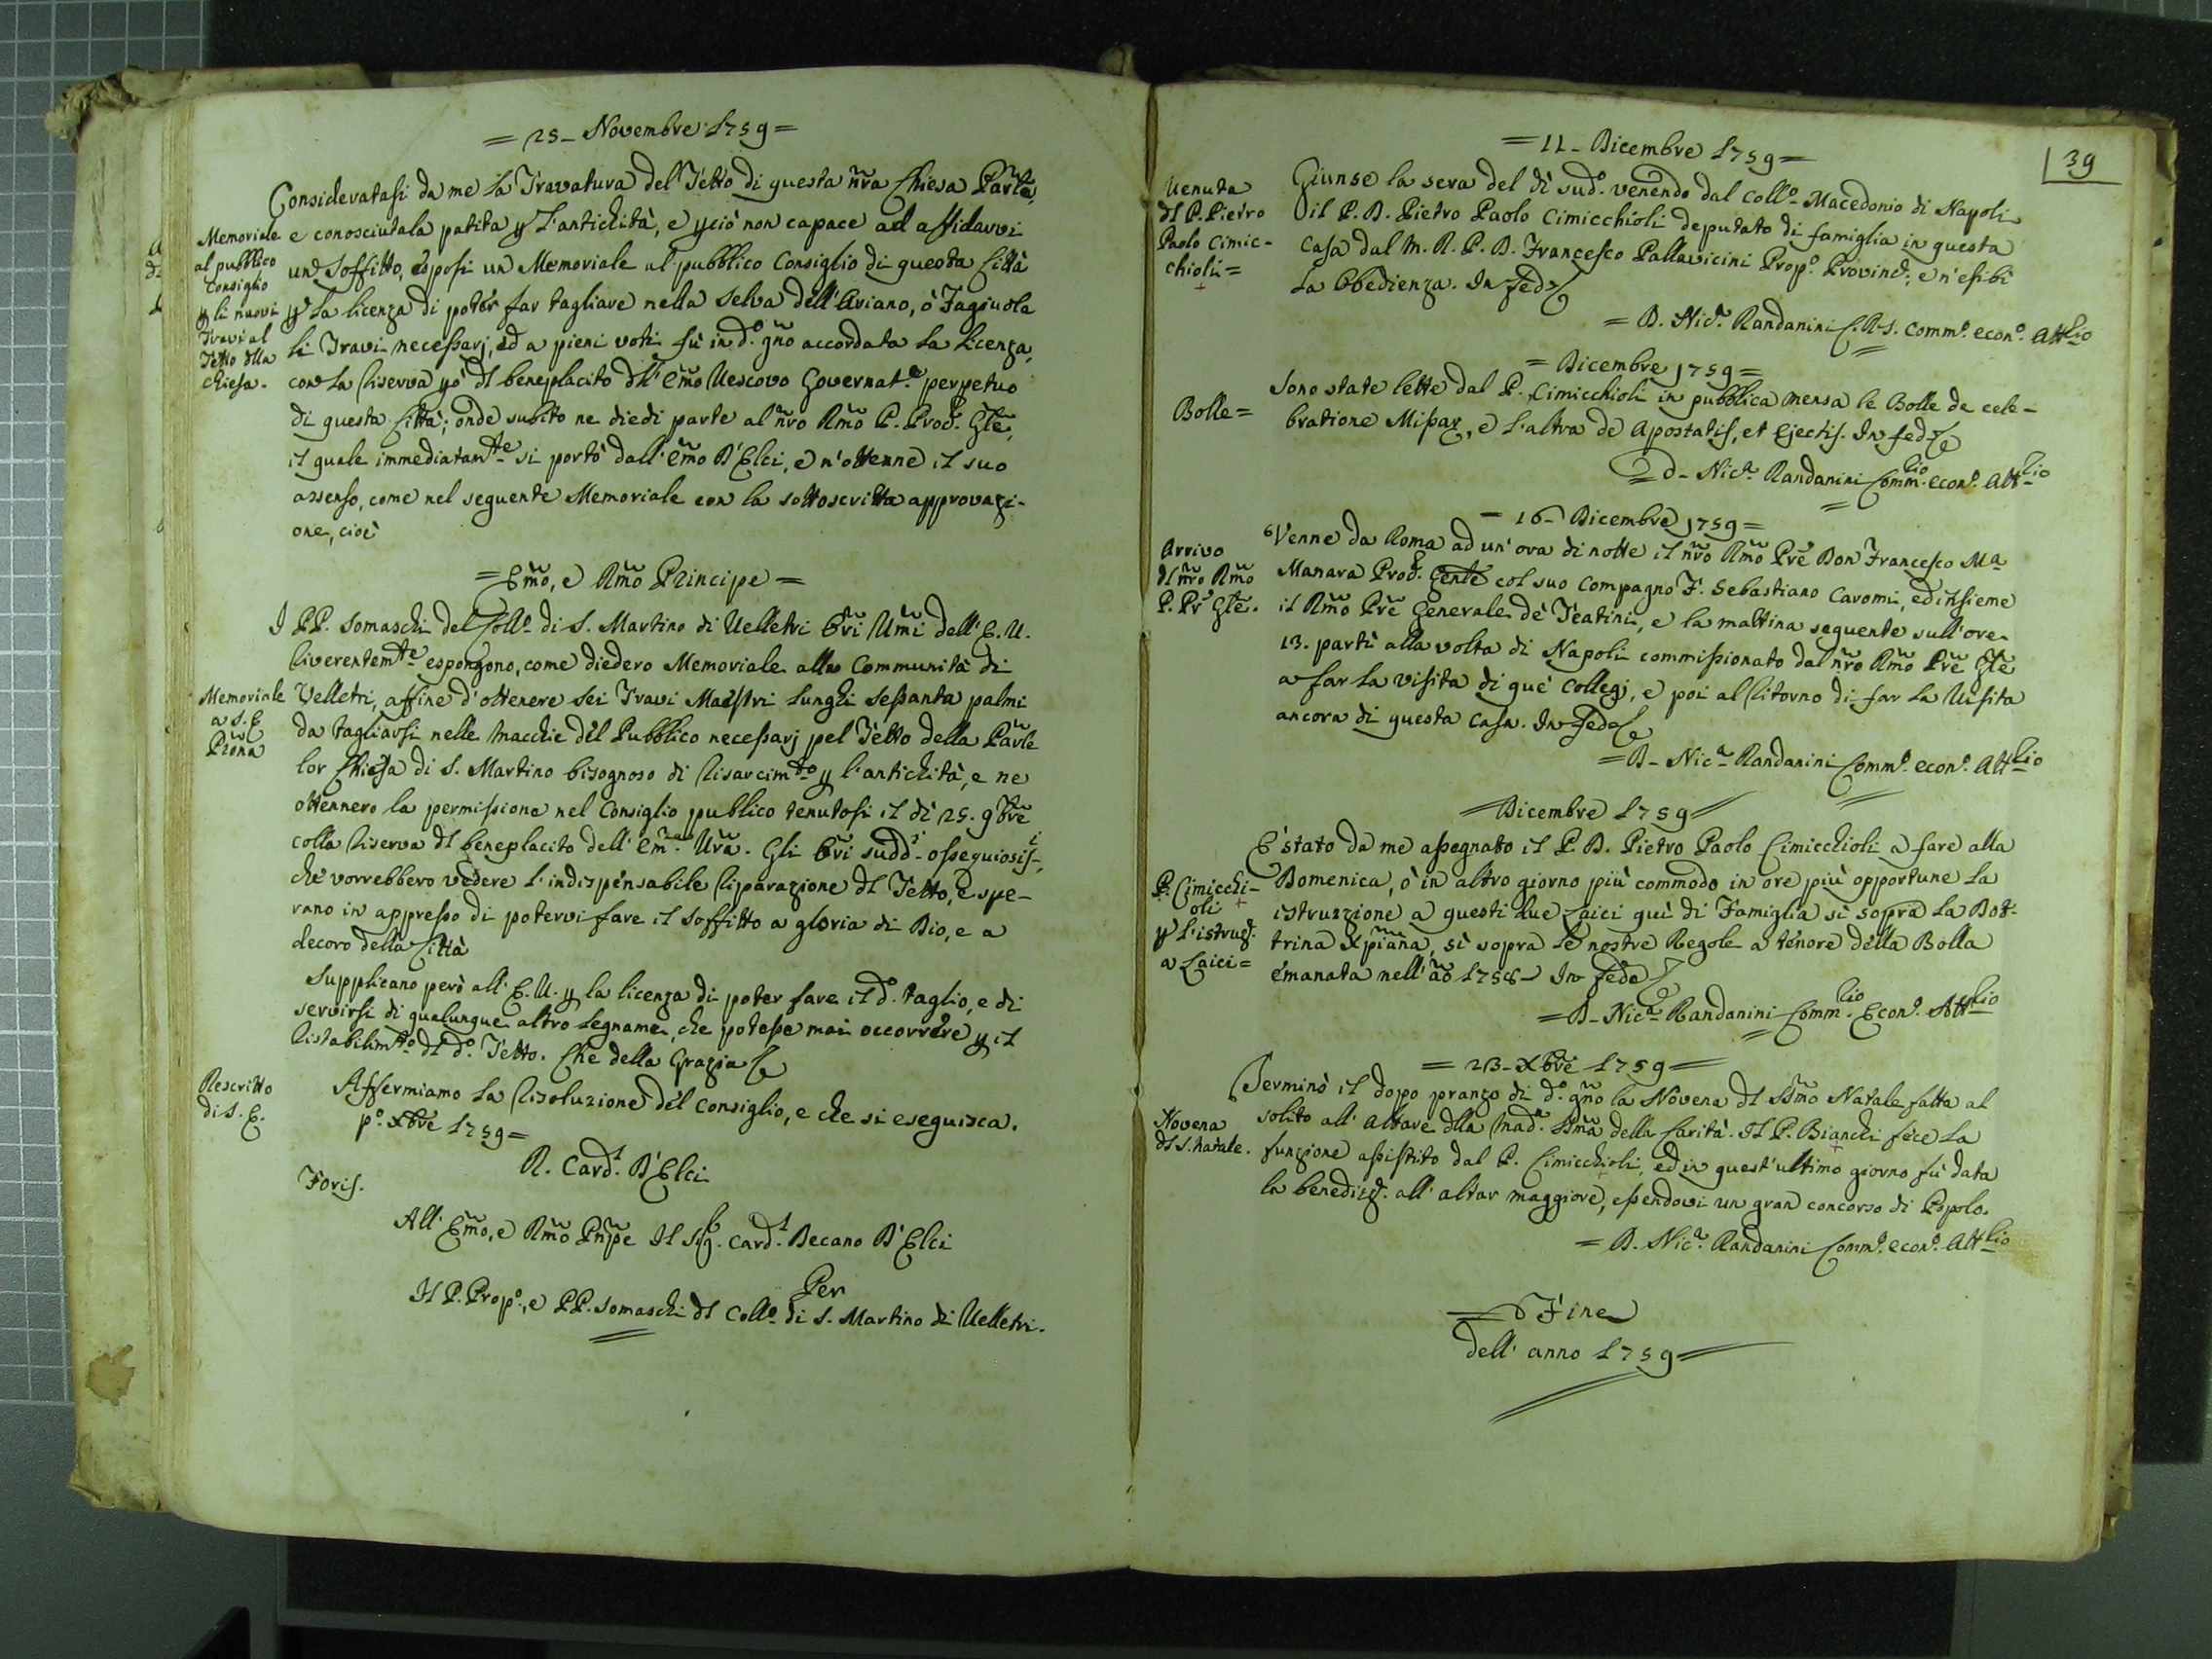 = 25 - Novembre 1759 =
Consideratasi da me la Travatura del Tetto di questa ñra Chiesa Parle,
Memoriale
al pubblico
Consiglio
p li nuovi
Travi al
Tetto dlla
chiesa.
e conosciutala patita p l'antichità, e pciò non capace ad affidarvi
un Soffitto, esposi un Memoriale al pubblico Consiglio di questa Città
p la licenza di poter far tagliare nella Selva dell'Ariano, ò Fagiuola
li Travi necessarj, ed a pieni voti fù in d.º gño accordata la licenza,
con la riserva pò dl beneplacito dll' Emo Vescovo Governat.e perpetuo
di questa Città; onde subito ne diedi parte al ñro Rmo P. Prod. Gle,
il quale immediatamte si portò dall' Emo D'Elci, e n'ottenne il suo
assenso, come nel seguente Memoriale con la sottoscritta approvazi-
one, cioè
= Emo, e Rmo Principe =
I PP. Somaschi del Collº di S. Martino di Velletri Ori Umi dell'E. V.
riverentemte espongono, come diedero Memoriale alla Communità di
Memoriale
a S. E
Prona
Velletri, affine d'ottenere sei Travi Maestri lunghi sessanta palmi
da tagliarsi nelle Macchie del Pubblico necessarj pel Tetto della Parle
lor Chiesa di S. Martino bisognoso di risarcimto p l'antichità, e ne
ottennero la permissione nel Consiglio publico tenutosi il dì 25. 9bre
colla riserva dl beneplacito dell' Em.ª Vra. Gli Ori sudd.i ossequiosis-
che vorrebbero vedere l'indispensabile riparazione dl Tetto, e spe-
rano in appresso di potervi fare il Soffitto a gloria di Dio, e a
decoro della Città
Supplicano però all' E. V. p la licenza di poter fare il d.º taglio, e di
servirsi di qualunque altro legname, che potesse mai occorrere p il
ristabilimto dl d.º Tetto. Che della Grazia
Rescritto
di S. E.
Affermiamo la risoluzione del Consiglio, e che si eseguisca.
p.º xbre 1759 =
R. Card.l D'Elci
Foris.
All' Emo, e Rmo Pnpe Il Sig. Card.l Decano D'Elci
Per
Il P. Prop.º, e PP. Somaschi dl Collº di S. Martino di Velletri.
39
= 11 - Dicembre 1759 =
Venuta
dl P. Pietro
Paolo Cimic-
chioli =
Giunse la sera del dì sud.º venendo dal Collº Macedonio di Napoli
il P. D. Pietro Paolo Cimicchioli deputato di famiglia in questa
Casa dal M. R. P. D. Francesco Pallavicini Prop.º Provinc.; e n'esibì
la Obedienza. In fede
= D. Nic.ª Randanini C. R. S. Comm.º econ.º Attlio
= Dicembre 1759 =
Bolle =
Sono state lette dal P. Cimicchioli in pubblica mensa le Bolle de cele-
bratione Missar, e l'altra de Apostatis, et Ejectis. In fede
D - Nic.ª Randanini Comm.rio econ.º Attlio
= 16 - Dicembre 1759 =
Arrivo
dl ñro Rmo
P. Pr Gle.
Venne da Roma ad un'ora di notte il ñro Rmo Pre Don Francesco Mª
Manara Prod. Gente col suo Compagno F. Sebastiano Caromi, ed insieme
il Rmo Pre Generale de' Teatini, e la mattina seguente sull'ore
13. partì alla volta di Napoli commissionato dal ñro Rmo Pre Gle
a far la visita di que' Collegj, e poi al ritorno di far la Visita
ancora di questa Casa. In fede
= D - Nic.ª Randanini Comm.º econ.º Attlio
= Dicembre 1759 =
P. Cimicchi-
oli
p l'istruz.
a Laici =
È stato da me assegnato il P. D. Pietro Paolo Cimicchioli a fare alla
Domenica, ò in altro giorno più commodo in ore più opportune la
istruzzione a questi due Laici quì di Famiglia sì sopra la Dot-
trina Xpiana, sì sopra le nostre Regole a tenore della Bolla
emanata nell'ao 1758 - In fede
= D - Nic.ª Randanini Comm.rio Econ.º Attlio
= 23 - Xbre 1759 =
Novena
dl S. Natale.
Terminò il dopo pranzo di d.º gño la Novena dl Ssmo Natale fatta al
solito all' Altare dlla Mad.ª Ssma della Carità. Il P. Bianchi fece la
funzione assistito dal P. Cimicchioli, ed in quest'ultimo giorno fù data
la benediz. all' altar maggiore, essendovi un gran concorso di Popolo.
= D. Nic.ª Randanini Comm.º econ.º Attlio
= Fine
dell' anno 1759 =